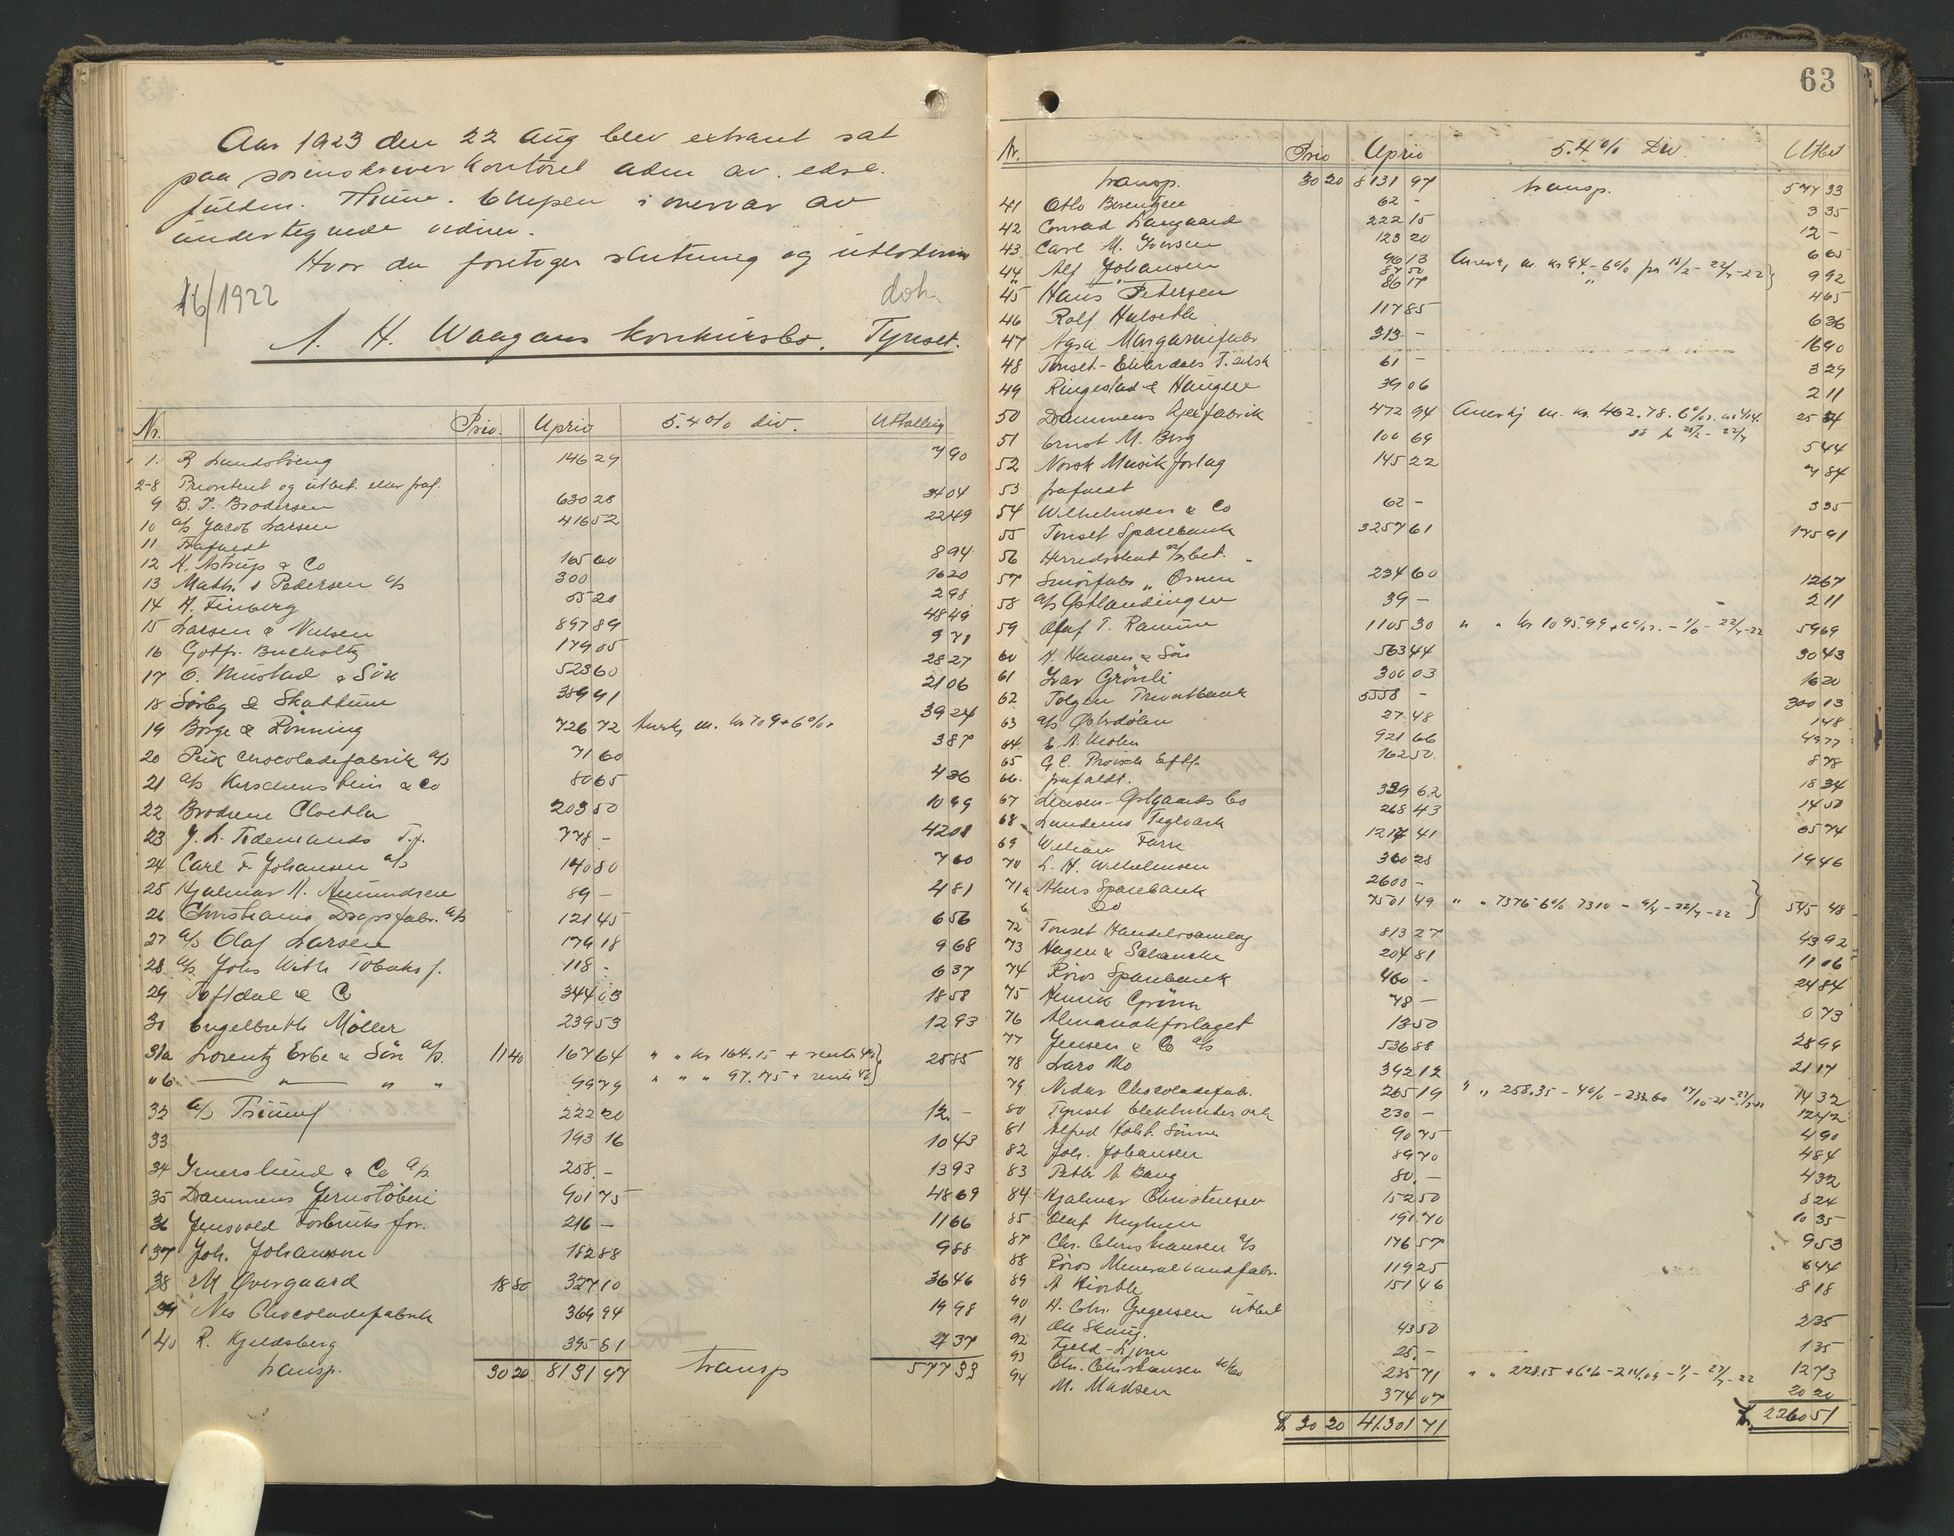 Aar 1923 den 22 Aug blev extraret sat
paa sorenskriverkontoret aden av edsv.
fuldm. i overvær av
undertegnede vidner.
Hvor da foretoges slutning og utlodning
16/1922
A. H. Waagans konkursbo. Tynset.
Nr. Prio. Uprio 5.4% div. Utbetaling
1. R Lundstveng 146 29 7 90
2-8 Prioritert og utbet. eller fraf.
9 B. F. Brodersen 630 28 34 04
10 a/s Jacob Larsen 416 52 22 49
11 Frafaldt
12 H. Astrup & Co 165 60 8 94
13 Math. Pedersen a/s 300 16 20
14 H. Finberg 55 20 2 98
15 Larsen & Nielsen 897 89 48 49
16 Gotfr. Bucholtz 179 85 9 71
17 O. Mustad & Søn 523 60 28 27
18 Sørby & Skattum 389 91 21 06
19 Børge & Rønning 726 72 39 24
20 Prik Chocoladefabrik a/s 71 60 3 87
21 a/s & Co 80 65 4 36
22 Brødrene Cloetta 203 50 10 99
23 J. L. Tidemands T.f. 778 - 42 08
24 Carl F Johansen a/s 140 80 7 60
25 Hjalmar A. Amundsen 89 - 4 81
26 Christiania Dropsfabr. a/s 121 45 6 56
27 a/s Olaf Larsen 179 18 9 68
28 a/s Johs With Tobaksf. 118 - 6 37
29 Toftdal & Co 344 03 18 58
30 Engelbreth Møller 239 53 12 93
31a Lorentz Erbe & Søn a/s. 11 40 167 64 " " kr 164.15 + rente 4% 25 85
" b " " " 99 79 " " " 97.75 + rente 4%
32 a/s Triumf 222 20 12. -
33 193 16 10 43
34 Ymerslund & Co a/s. 258. - 13 93
35 Drammens Jernstøberi 901 75 48 69
36 Jensvold Forbruks for. 216 - 11 66
37 Joh. Johanson 182 88 9 88
38 M Øvergaard 18 80 327 10 36 46
39 Nes Chocoladefabrik 369 94 19 98
40 R. Kjeldsberg 395 81 21 37
transp. 30 20 8131 97 transp 577 33
63
Nr. Prio Uprio 5.4% Div. Utbet
transp. 30 20 8131 97 transp. 577 33
41 Otto Berentzen 62 - 3 35
42 Conrad Langaard 222 15 12 -
43 Carl M. Iversen 123 20 6 65
44 Alf Johansen 96 13
45 Hans Petersen 86 17 4 65
46 Rolf Hulseth 117 85 6 36
47 Agra Margarinfabr 313 - 16 90
48 Tønset-Elverdals T. selsk 61 - 3 29
49 Ringestad & Haugen 39 06 2 11
50 Drammens Kjexfabrik 472 94 25 54
51 Ernst M. Berg 100 69 5 44
52 Norsk Musikforlag 145 22 7 84
53 frafaldt
54 Wilhelmsen & Co 62 - 3 35
55 Tønset Sparebank 3257 61 175 91
56 Herredsskat utbet. -
57 Smørfabr. " Ørnen 234 60 12 67
58 a/s Østlendingen 39 - 2 11
59 Olaf T. Ramm 1105 30 59 69
60 H. Hansen & Søn 563 44 30 43
61 Ivar Grønli 300 03 16 20
62 Tolgen Privatbank 5558 - 300 13
63 a/s Østerdølen 27 48 1 48
64 E. A. Moen 921 66 49 77
65 G. C. Efff. 162 50 8 78
66. frafaldt.
67 Jensen-Gylgaards Co 339 62 18 34
68 Landems Teglverk 268 43 14 50
69 William Farre 1217 41 65 74
70 L. H. Wilhelmsen 360 28 19 46
71a Akers Sparebank 2600 -
b Do 7501 49 " " 7376 - 6% 7310 545 48
72 Tønset Handelssamlag 813 27 43 92
73 Hagen & 204 81 11 06
74 Røros Sparebank 460 - 24 84
75 Henrik Grønn 78 -
76 Almanakforlaget 13 50 0 73
77 Jensen & Co a/s 536 88 28 99
78 Lars Mo 392 12 21 17
79 Nidar Chocoladefabr. 265 19 " " 258.35 - 4% 14 32
80 Tynset Elektricitetsverk 230 - 12 42
81 Alfred Holst Sønner 90 75 4 90
82 Joh. Johansen 89 70 4 84
83 Petter A Bang 80. - 4 32
84 Hjalmar Christensen 152 50 8 24
85 Olaf Myhren 191 70 10 35
87 Chr. Christiansen a/s 176 57 9 53
88 Røros Mineralvandfabr. 119 25 6 44
89 A 151 46 8 18
90 H. Chr. Gregersen utbet
91 Ole Skaug. 43 50 2 35
92 Fjeld-Ljom 25. - 1 35
93 Chr. Christiansen 235 71 12 73
94 M. Madsen 374 07 20 20
kr. 30 20 41.301 71 kr. 2260 51